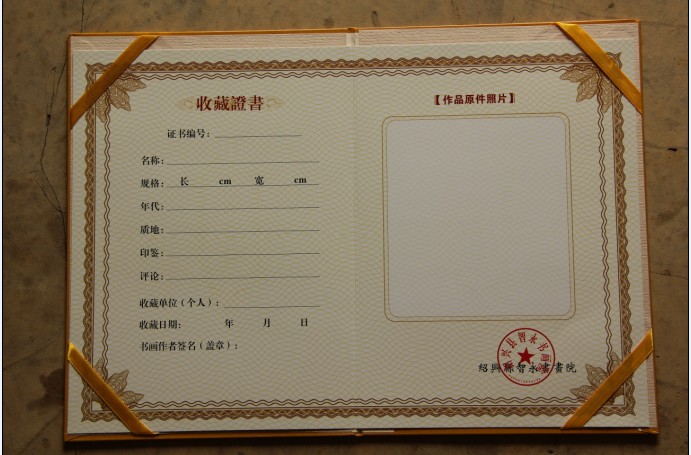 收藏證書
证书编号：
名称：
规格： 长 cm 宽 cm
年代：
质地：
印鉴：
评论：
收藏单位（个人）：
收藏日期： 年 月 日
书画作者签名（盖章）：
【作品原件照片】
紹興縣智永書畫院